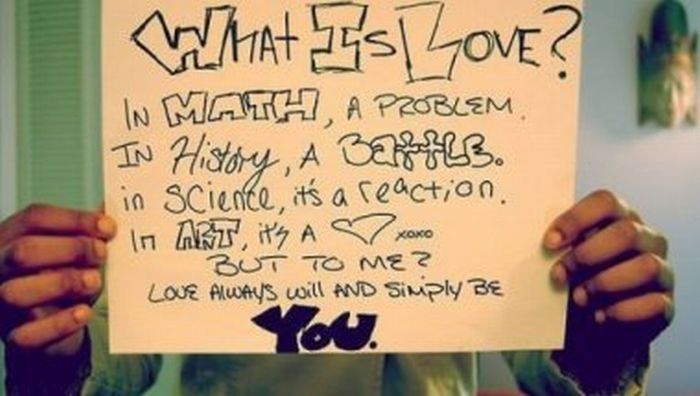 What Is Love?
In MATH, A PROBLEM.
IN History, A BATTLE.
in science, it's a reaction.
In ART, it's A ♡ xoxo
BUT TO ME?
LOVE ALWAYS will AND Simply BE
YOU.